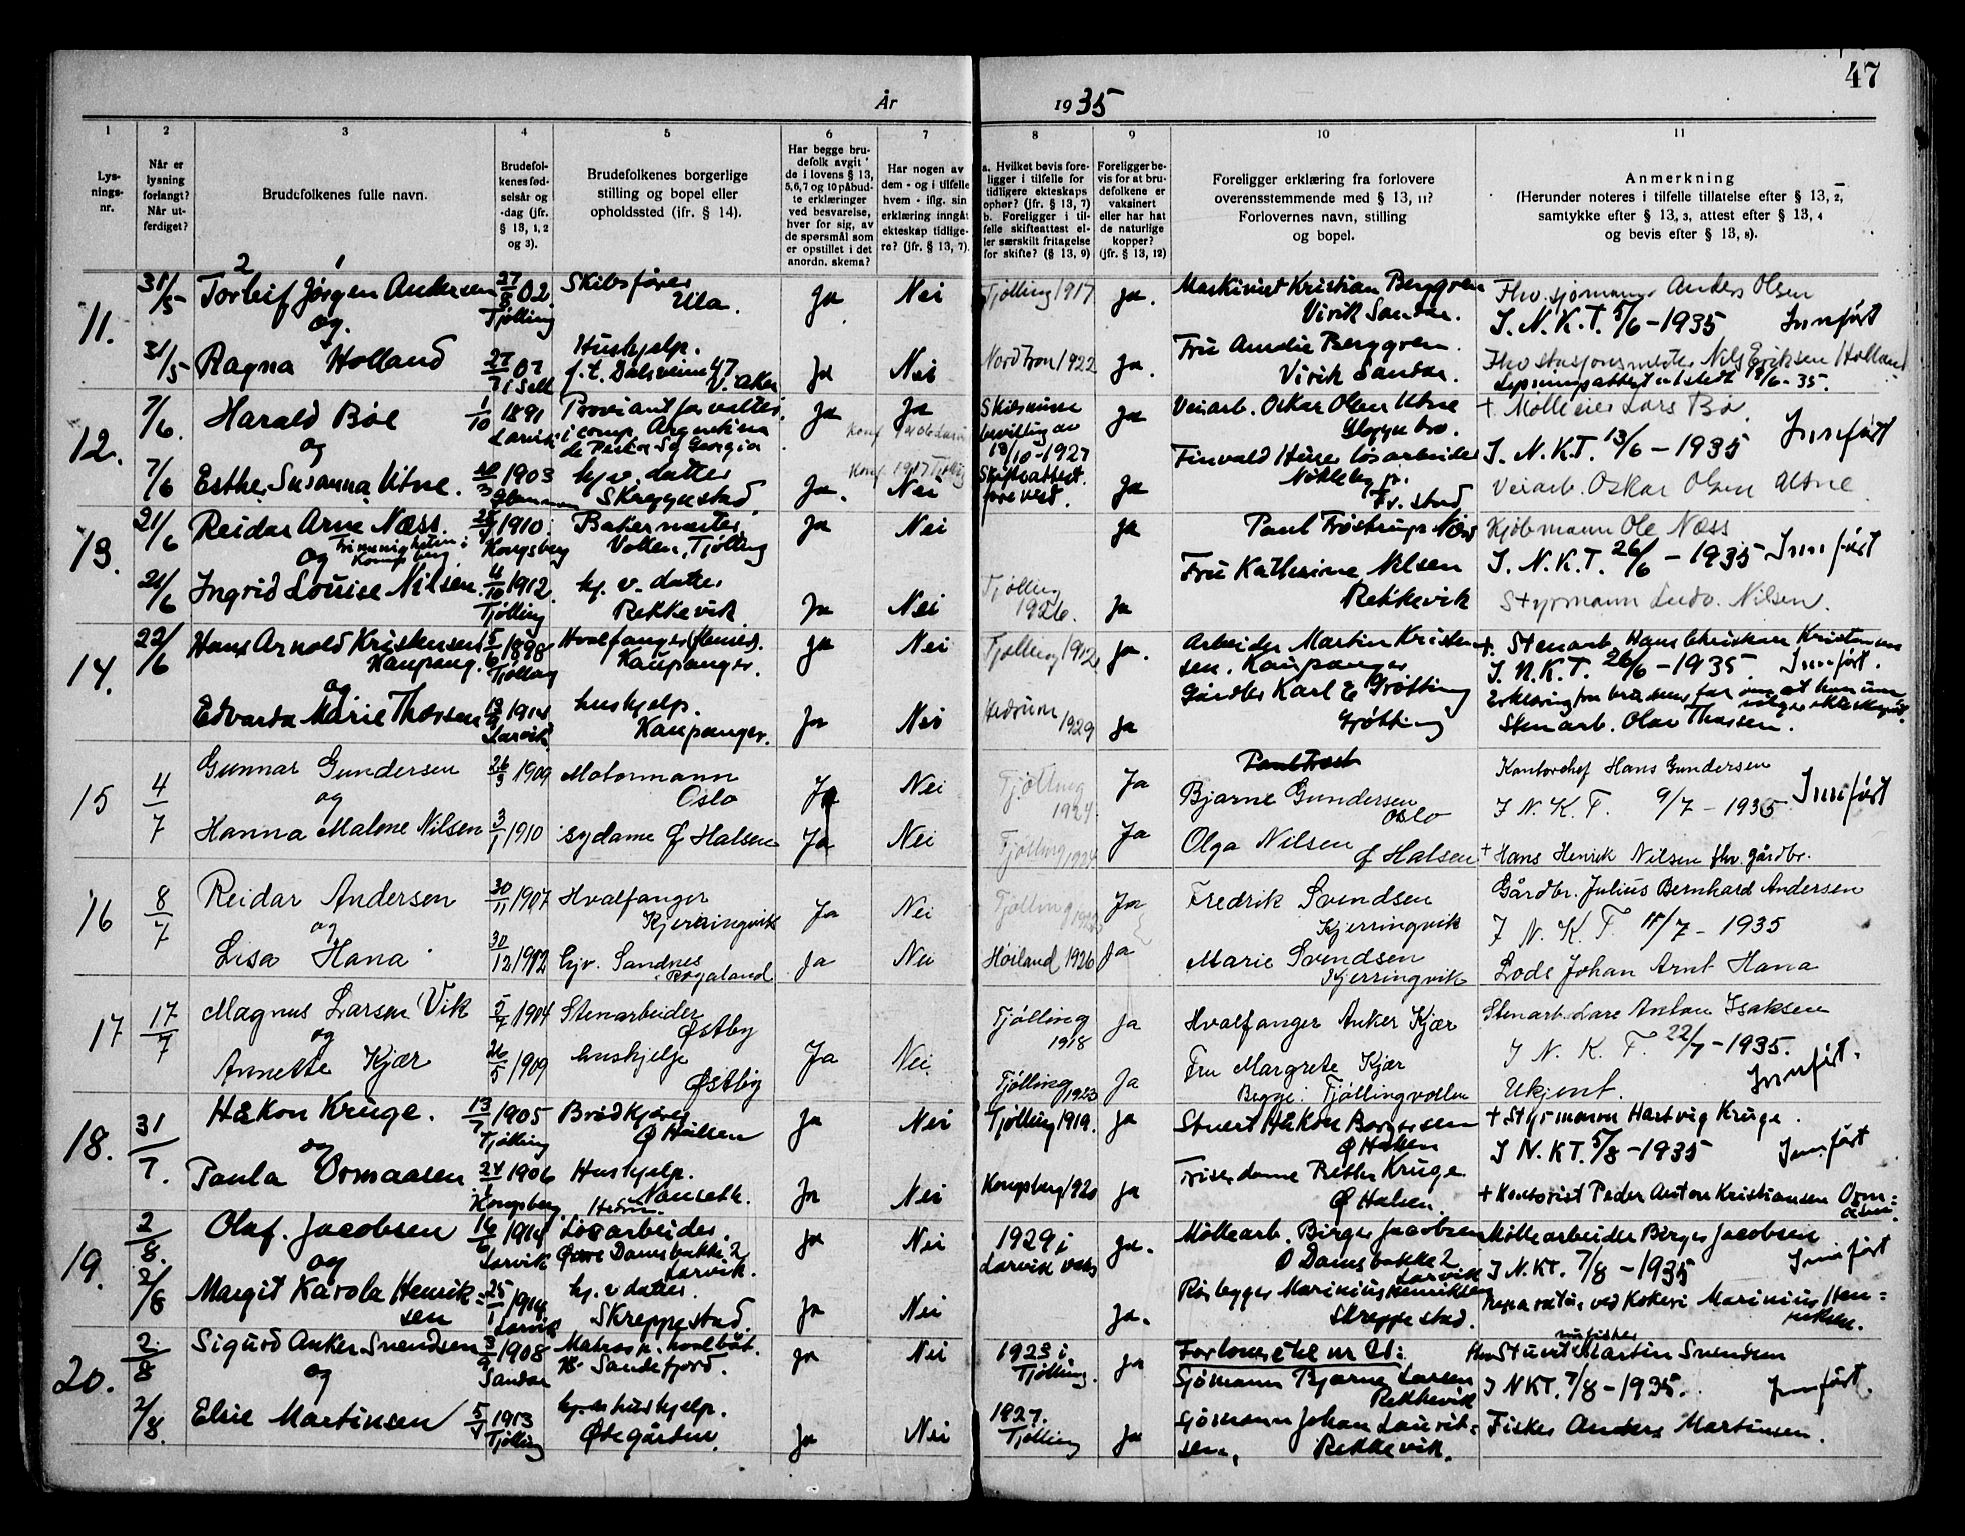 47
År 1935
1 2 3 4 5 6 7 8 9 10 11
Lysnings-nr.
Når er lysning forlangt? Når utferdiget?
Brudefolkenes fulle navn.
Brudefolkenes fødselsår og -dag (jfr. § 13, 1, 2 og 3).
Brudefolkenes borgerlige stilling og bopel eller opholdssted (jfr. § 14).
Har begge brudefolk avgitt de i lovens § 13, 5, 6, 7 og 10 påbudte erklæringer ved besvarelse, hver for sig, av de spørsmål som er opstillet i det anordn. skema?
Har nogen av dem - og i tilfelle hvem - iflg. sin erklæring inngått ekteskap tidligere? (jfr. § 13, 7).
a. Hvilket bevis foreligger i tilfelle for tidligere ekteskaps ophør? (jfr. § 13, 7) b. Foreligger i tilfelle skifteattest eller særskilt fritagelse for skifte? (§ 13, 9)
Foreligger bevis for at brudefolkene er vaksinert eller har hat de naturlige kopper? (jfr. § 13, 12)
Foreligger erklæring fra forlovere overensstemmende med § 13, 11? Forlovernes navn, stilling og bopel.
Anmerkning (Herunder noteres i tilfelle tillatelse efter § 13, 2, samtykke efter § 13, 3, attest efter § 13, 4 og bevis efter § 13, 8).
11. 31/5 Torleif Jørgen Andersen 27/8 02 Tjølling Skibsfører Ula. Ja Nei Tjølling 1917 Ja. Maskinist Kristian Berggren Virik Sandar. Fhv. sjømann Anders Olsen
og. I. N. K. T. 5/6 - 1935 Innført
31/5 Ragna Holland 27/7 07 i Sell Hushjelp. f. t. V. Aker Ja Nei Nord Fron 1922 Ja. Fru Amelie Berggren. Virik Sandar. Fhv stasjonsmester Nils Eriksen Holland
Lysningsattest utstedt 18/6 - 35.
12. 7/6. Harald Bøe 1/10 1891 Larvik Proviantforvalter i comp. Argentina de Pesca Sy Georgia Ja Ja Skilsmisse bevilling av 18/10 - 1927 Ja Veiarb. Oskar Olsen Utne + Mølleeier Lars Bø
og I. N. K. T. 13/6 - 1935 Innført
7/6 Esther Susanna Utne. 1903 hjv. datter Skreppestad. Ja. Konf. 1917 Tjølling Nei Skifteattest forevist. Ja Veiarb. Oskar Olsen Utne
13. 21/6 Reidar Arne Næss. 1910 Kongsberg Bakermester Vollen, Tjølling Ja Nei Ja Paul Frøstrup Næss Kjøbmann Ole Næss
og I. N. K. T. 26/6 - 1935 Innført
21/6 Ingrid Louise Nilsen. 4/10 1912. Tjølling hj. v. datter Rekkevik. Ja Nei Tjølling 1926. Ja Fru Kathrine Nilsen Rekkevik Styrmann Ludv. Nilsen.
14. 22/6 Hans Arnold Kristensen Kaupang. 5/6 1898 Tjølling Hvalfanger Kaupanger. Ja Nei Tjølling 1912 Ja. Arbeider Martin Kristensen, Kaupanger +. Stenarb Hans Christian Kristensen
og I. N. K. T. 26/6 - 1935 Innført.
Edvarda Marie Thorsen 1914 Larvik hushjelp. Kaupanger. Ja Nei Hedrum 1929 Ja Gårdbr Karl E Grøtting Grøtting Stenarb. Olav Thorsen.
15 4/7 Gunnar Gundersen 26/3 1909 Motormann Oslo Ja Nei Tjølling 1924. Ja Bjarne Gundersen Oslo Kontorchef Hans Gundersen
og I N. K. T. 9/7 - 1935 Innført
Hanna Malene Nilsen 3/1 1910 sydame Ø Halsen Ja Nei Tjølling 1924 Ja Olga Nilsen Ø Halsen + Hans Henrik Nilsen fhv. gårdbr.
16 8/7 Reidar Andersen 30/11 1907 Hvalfanger Kjerringvik Ja Nei Tjølling Ja Fredrik Svendsen Kjerringvik Gårdbr. Julius Bernhard Andersen
og I N. K. T. 11/7 - 1935
Lisa Hana 30/12 1912 hjv. Sandnes Rogaland Ja Nei Høiland 1926 Ja Marie Svendsen Kjerringvik Lods Johan Arnt Hana
17 17/7 Magnus Larsen Vik 1904 Stenarbeider Østby Tjølling 1918 Ja Hvalfanger Anker Kjær Stenarb. Lars Anton Isaksen
og I N. K. T. 22/7 - 1935.
Annette Kjær 26/5 1909 hushjelp Østby Ja Nei. Tjølling 1923 Ja Fru Margrete Kjær Begge: Tjøllingvollen Ukjent. Innført.
18. 31/7. Håkon Kruge. 13/7 1905 Tjølling Brødkjører Ø Halsen Ja Nei Tjølling 1919. Ja Stuert Håkon Borgersen Ø Halsen + Styrmann Hartvig Kruge.
og I N. KT. 5/8 - 1935 Innført
Paula Ormaasen 24/1 1906 Kongsberg. Hushjelp. Nanseth. Hedrum. Ja Nei Kongsberg 1920 Ja Frisørdame Kruge Ø Halsen. + Kontorist Peder Anton Kristiansen Ormaasen.
19. 2/8. Olaf. Jacobsen 16/6 1914 Larvik Løsarbeider. Øvre Damsbakke 2 Larvik. Ja Nei 1929 i Larvik Ja. Møllearb. Birger Jacobsen Ø Damsbakke 2 Larvik Møllearbeider Birger Jacobsen
og I N. KT. 7/8 - 1935 Innført
2/8 Margit Karola Henriksen 25/1 1914 Larvik hj. v datter. Skreppestad. Ja Nei Ja. Rørlegger Marinius Henriksen Skreppestad. Reparatør ved Kokeri Marinius Henriksen.
20. 2/8 Sigurd Anker Svendsen 3/9 1908 Sandar Matros p. hvalbåt. Sandefjord. Ja Nei 1923 i Tjølling. Ja Sjømann Bjarne Larsen Rekkevik Fhv Stuert Martin Svendsen
og I NKT. 7/8 - 1935. Innført.
2/8. Elsie Martinsen 1913 Tjølling hushjelp. Ødegården. Ja Nei 1927. Tjølling Ja Sjømann Johan Lauritsen, Rekkevik. Fisker Anders Martinsen.